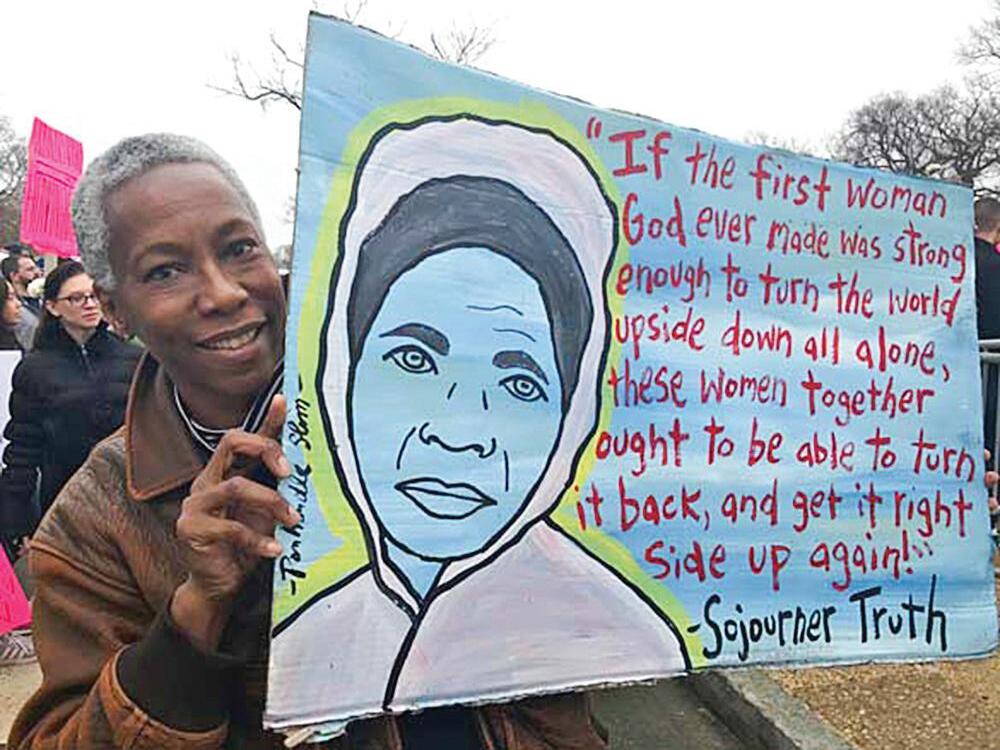 "If the first woman
God ever made was strong
enough to turn the world
upside down all alone,
these women together
ought to be able to turn
it back, and get it right
side up again!"
-Sojourner Truth
-Panhandle Slim-